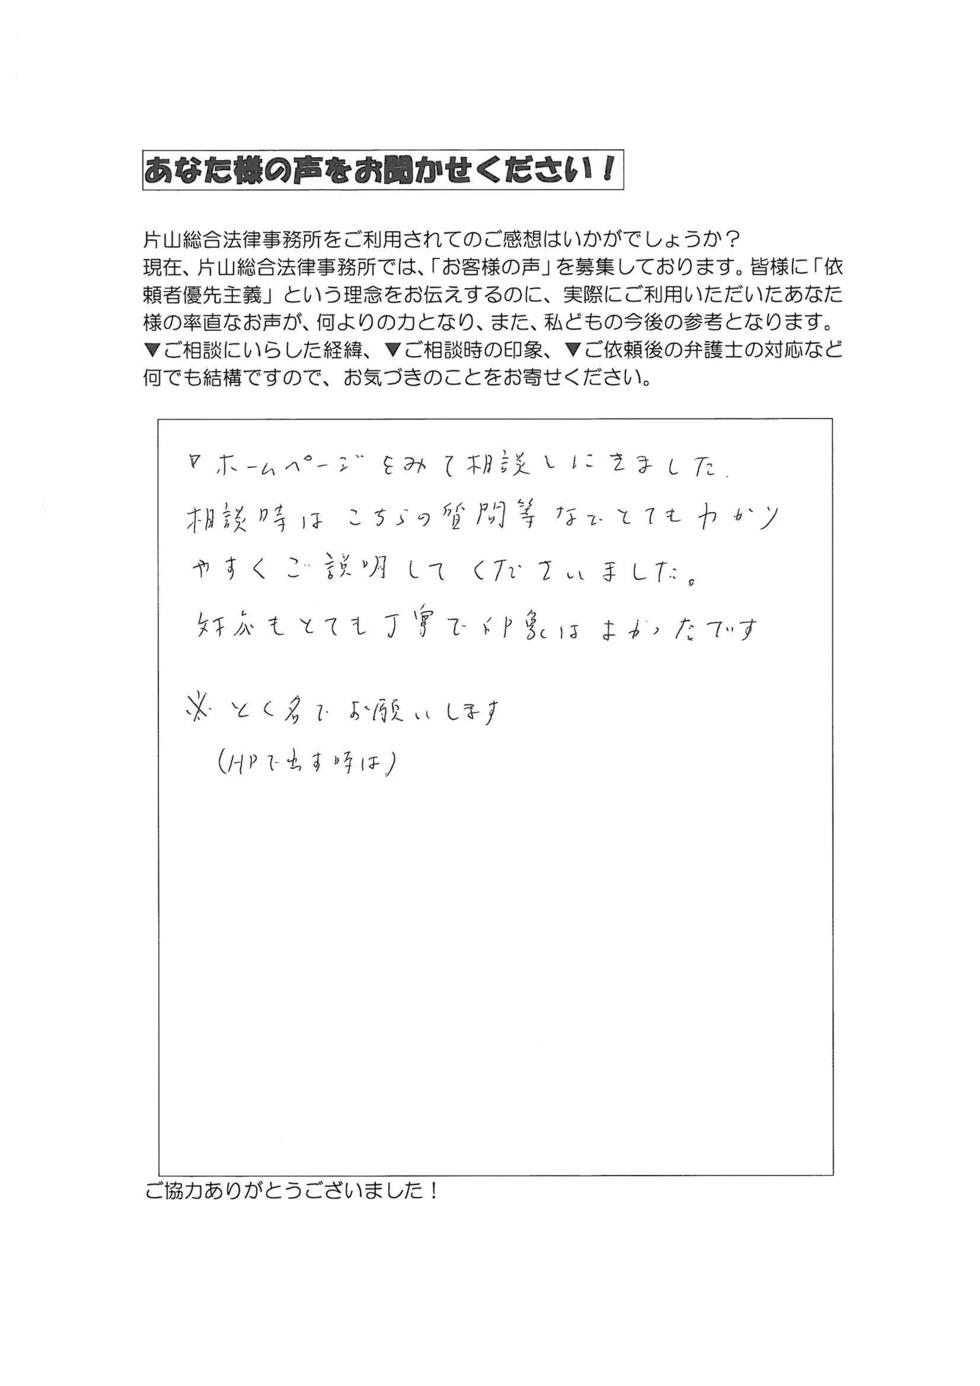 あなた様の声をお聞かせください！
片山総合法律事務所をご利用されてのご感想はいかがでしょうか？
現在、片山総合法律事務所では、「お客様の声」を募集しております。皆様に「依
頼者優先主義」という理念をお伝えするのに、実際にご利用いただいたあなた
様の率直なお声が、何よりの力となり、また、私どもの今後の参考となります。
▼ご相談にいらした経緯、▼ご相談時の印象、▼ご依頼後の弁護士の対応など
何でも結構ですので、お気づきのことをお寄せください。
▽ホームページをみて相談しにきました.
相談時はこちらの質問等なでとてもわかり
やすくご説明してくださいました。
対応もとても丁寧で印象はよかったです
※とく名でお願いします
(HPで出す時は)
ご協力ありがとうございました！